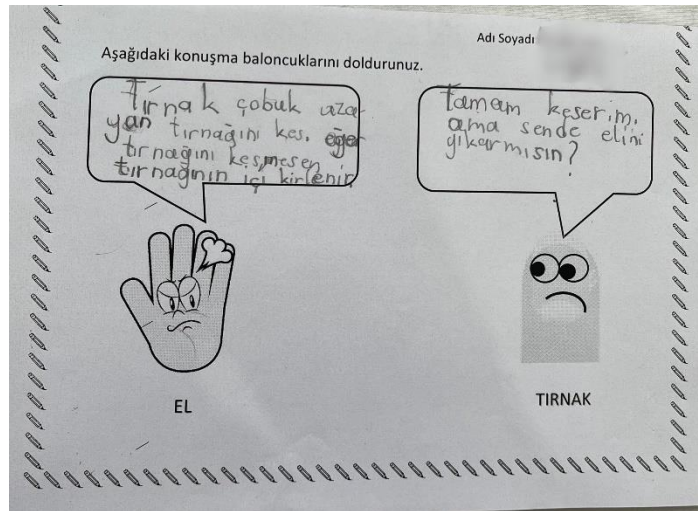 Adı Soyadı
Aşağıdaki konuşma baloncuklarını doldurunuz.
Tırnak çobuk uza
yan tırnağını kes. eğer
tırnağını kesmesen
tırnağının içi kirlenir
Tamam keserim.
ama sende elini
yıkarmısın?
EL
TIRNAK